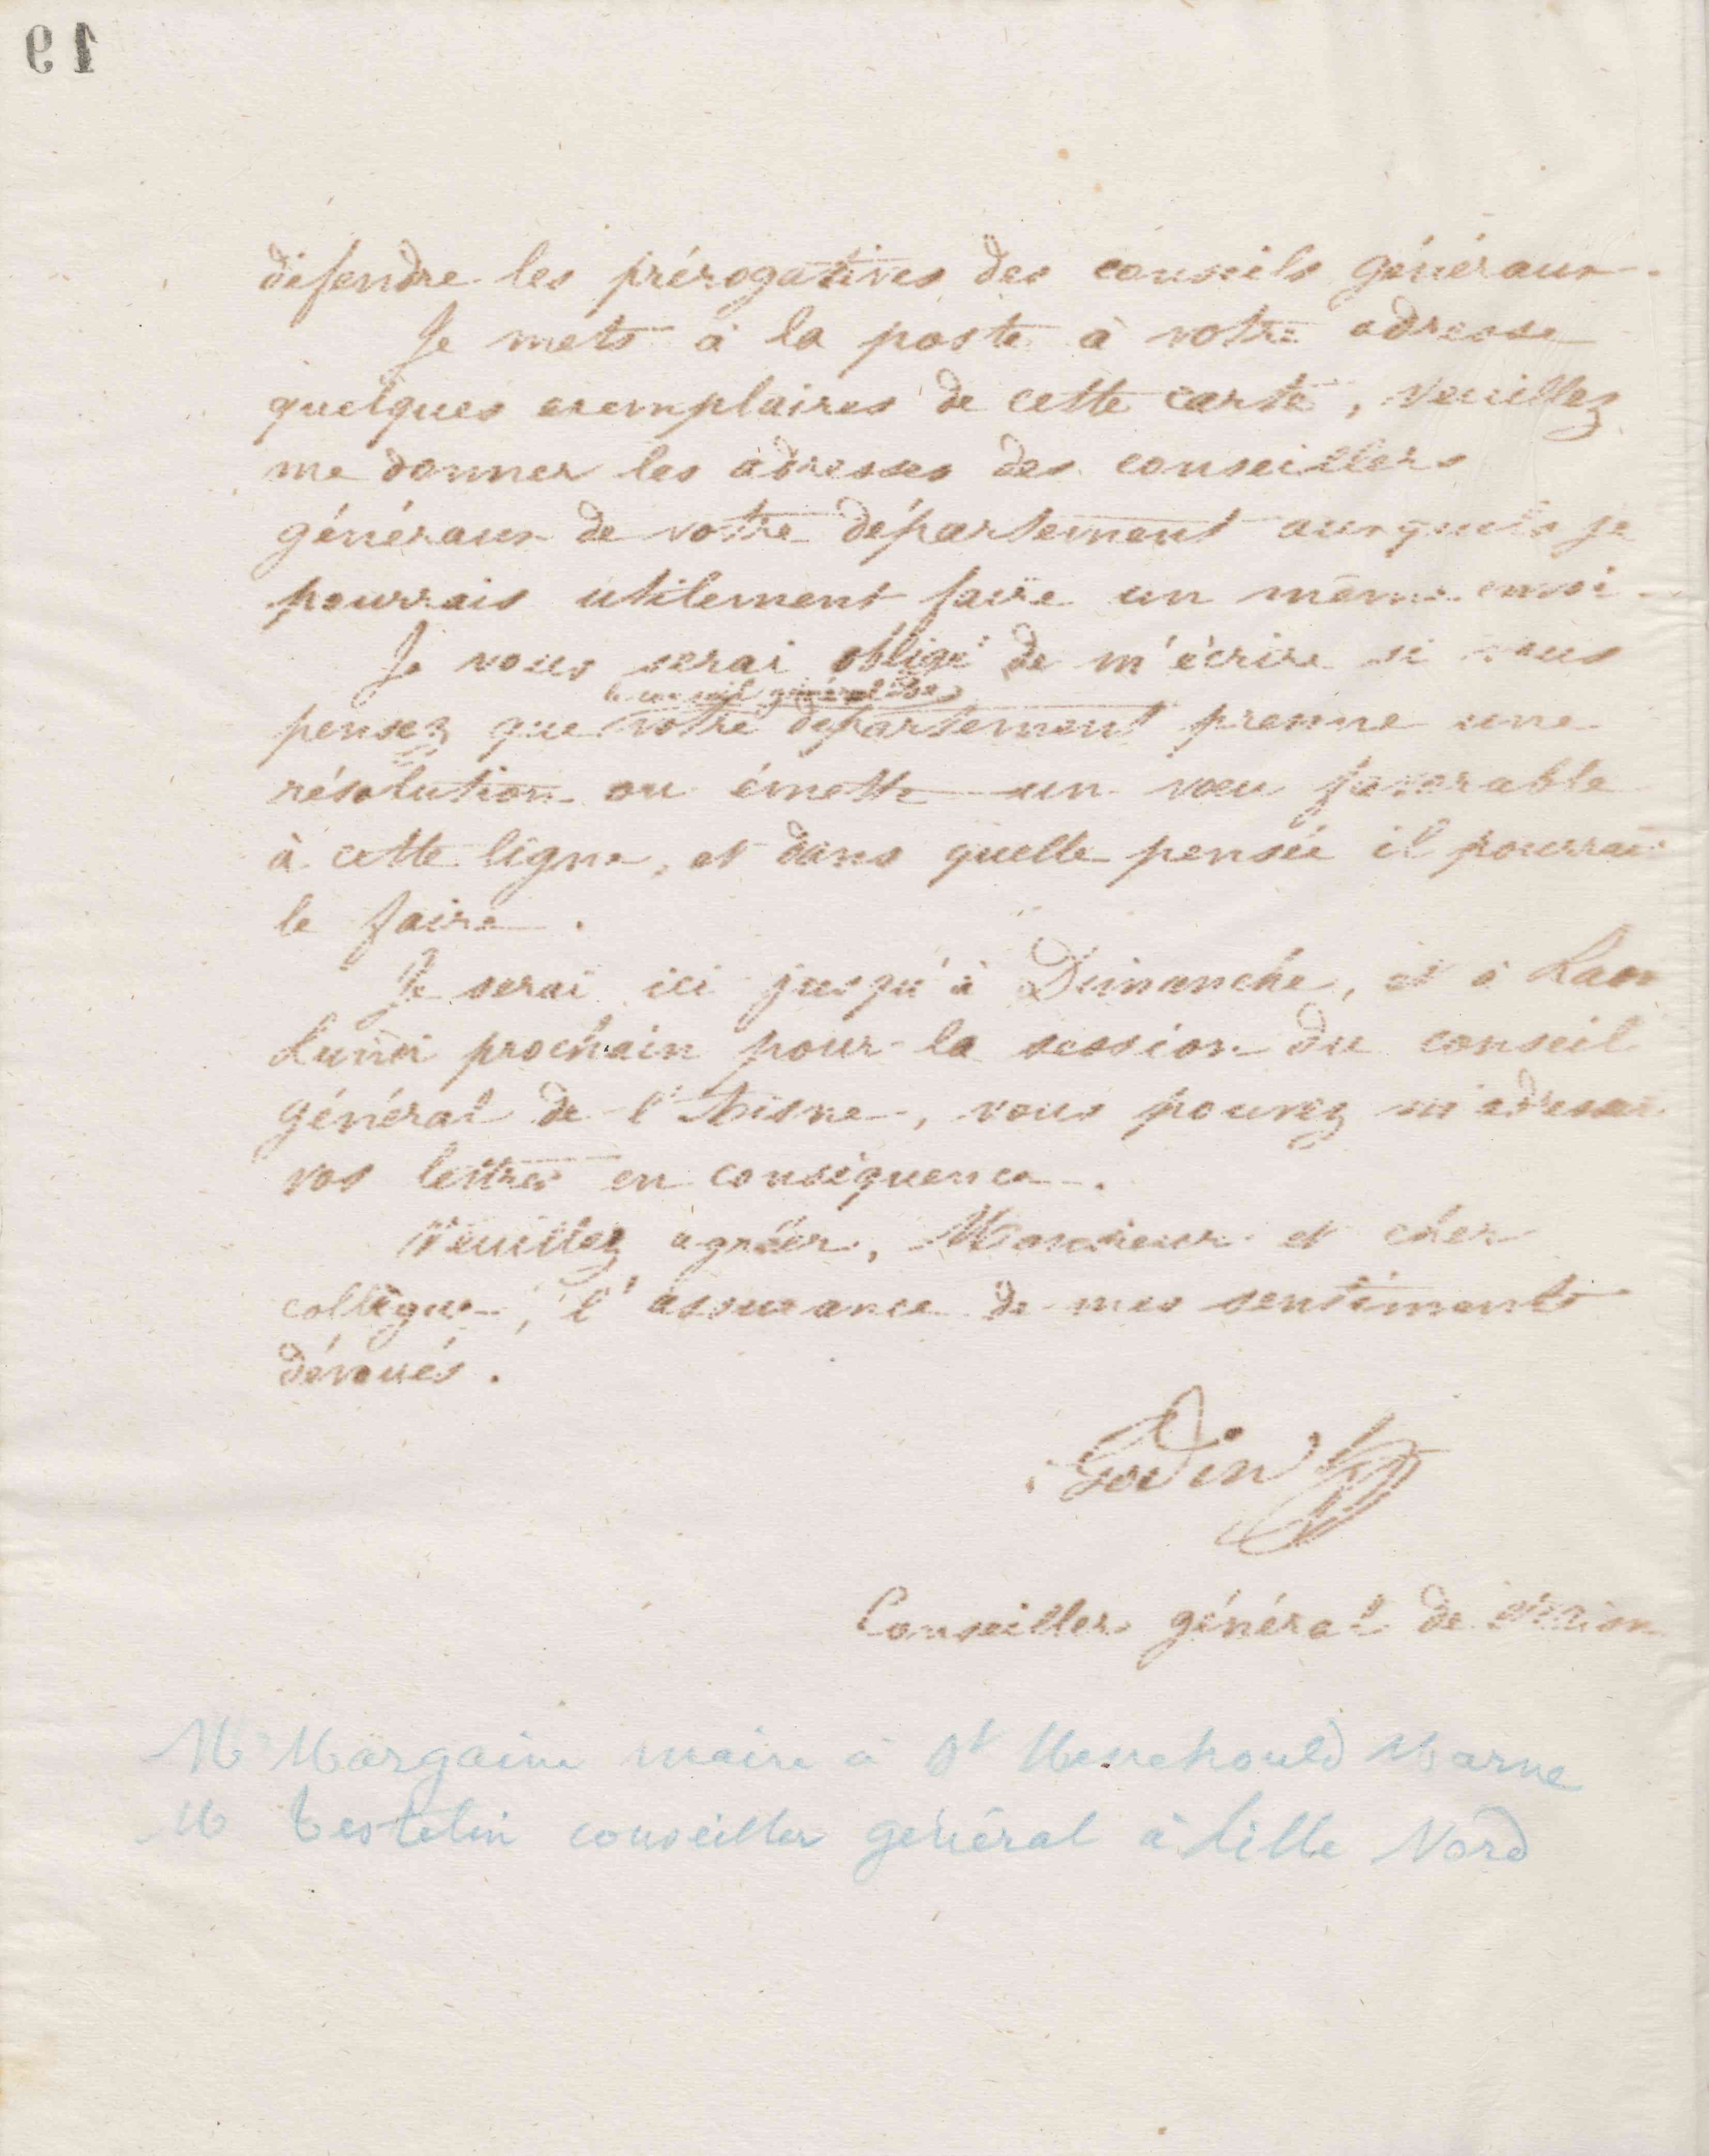 19
défendre les prérogatives des conseils généraux.
Je mets à la poste à votre adresse
quelques exemplaires de cette carte, veuillez
me donner les adresses des conseillers
généraux de votre département auxquels je
pourrais utilement faire un même envoi.
Je vous serai obligé de m'écrire si vous
le conseil général de
pensez que votre département prenne une
résolution ou émette un vœu favorable
à cette ligne, et dans quelle pensée il pourrait
le faire.
Je serai ici jusqu'à Dimanche, et à Laon
Lundi prochain pour la session du conseil
général de l'Aisne, vous pouvez m'adresser
vos lettres en conséquence.
Veuillez agréer, Monsieur et cher
collègue, l'assurance de mes sentiments
dévoués.
Godin
Conseiller général de
M Margaine maire à St Menehould Marne
M Testelin conseiller général à Lille Nord